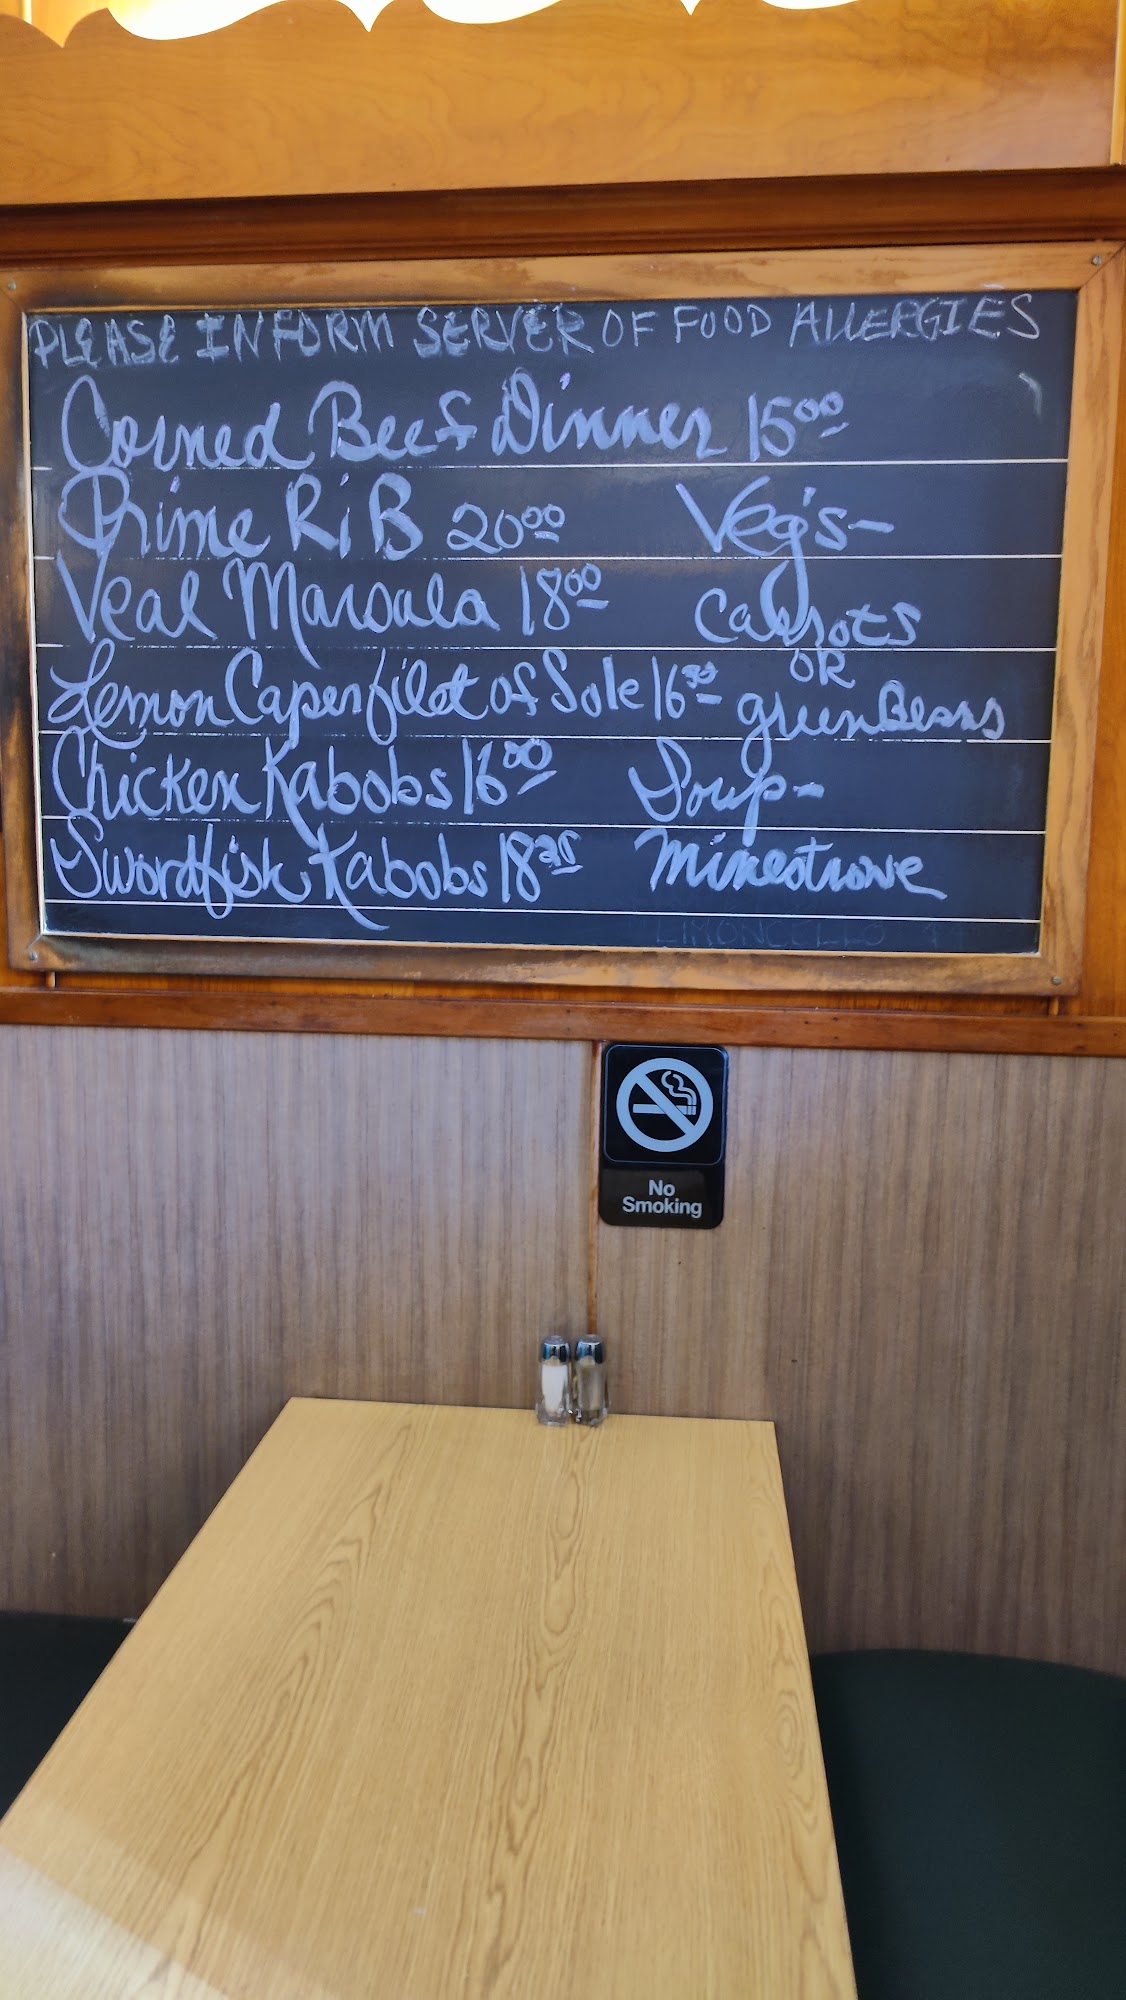 PLEASE INFORM SERVER OF FOOD ALLERGIES
Corned Beef Dinner 15.00
Prime RiB 20.00
Veal Marsala 18.00
Lemon Caper filet of Sole 16.50
Chicken Kabobs 16.00
Swordfish Kabobs 18.25
Veg's-
Carrots
OR
green Beans
Soup-
Minestrone
LIMONCELLO
No
Smoking